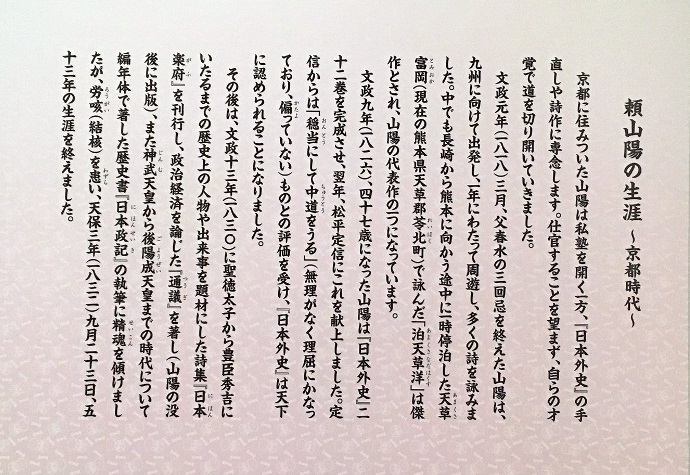 頼山陽の生涯 ～京都時代～
京都に住みついた山陽は私塾を開く一方、『日本外史』の手
直しや詩作に専念します。仕官することを望まず、自らの才
覚で道を切り開いていきました。
文政元年(一八一八)三月、父春水の三回忌を終えた山陽は、
九州に向けて出発し、一年にわたって周遊し、多くの詩を詠みま
した。中でも長崎から熊本に向かう途中に一時停泊した天草
富岡(現在の熊本県天草郡苓北町)で詠んだ「泊天草洋」は傑
作とされ、山陽の代表作の一つになっています。
文政九年(一八二六)四十七歳になった山陽は『日本外史』二
十二巻を完成させ、翌年、松平定信にこれを献上しました。定
信からは「穏当にして中道をうる」(無理がなく理屈にかなっ
ており、偏っていない)ものとの評価を受け、『日本外史』は天下
に認められることになりました。
その後は、文政十三年(一八三〇)に聖徳太子から豊臣秀吉に
いたるまでの歴史上の人物や出来事を題材にした詩集『日本
楽府』を刊行し、政治経済を論じた『通議』を著し(山陽の没
後に出版)、また神武天皇から後陽成天皇までの時代について
編年体で著した歴史書『日本政記』の執筆に精魂を傾けまし
たが、労咳(結核)を患い、天保三年(一八三二)九月二十三日、五
十三年の生涯を終えました。